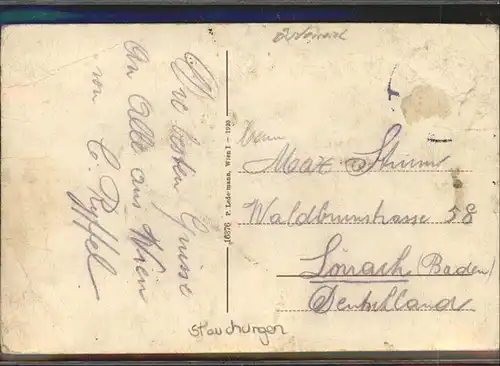 Die besten Grüsse
an Alle aus Wien
von
C. Ryffel
16376 P. Ledermann, Wien I - 1930
Herrn
Max Sturm
Waldbrunnstrasse 58
Lörrach (Baden)
Deutschland
Stauchungen